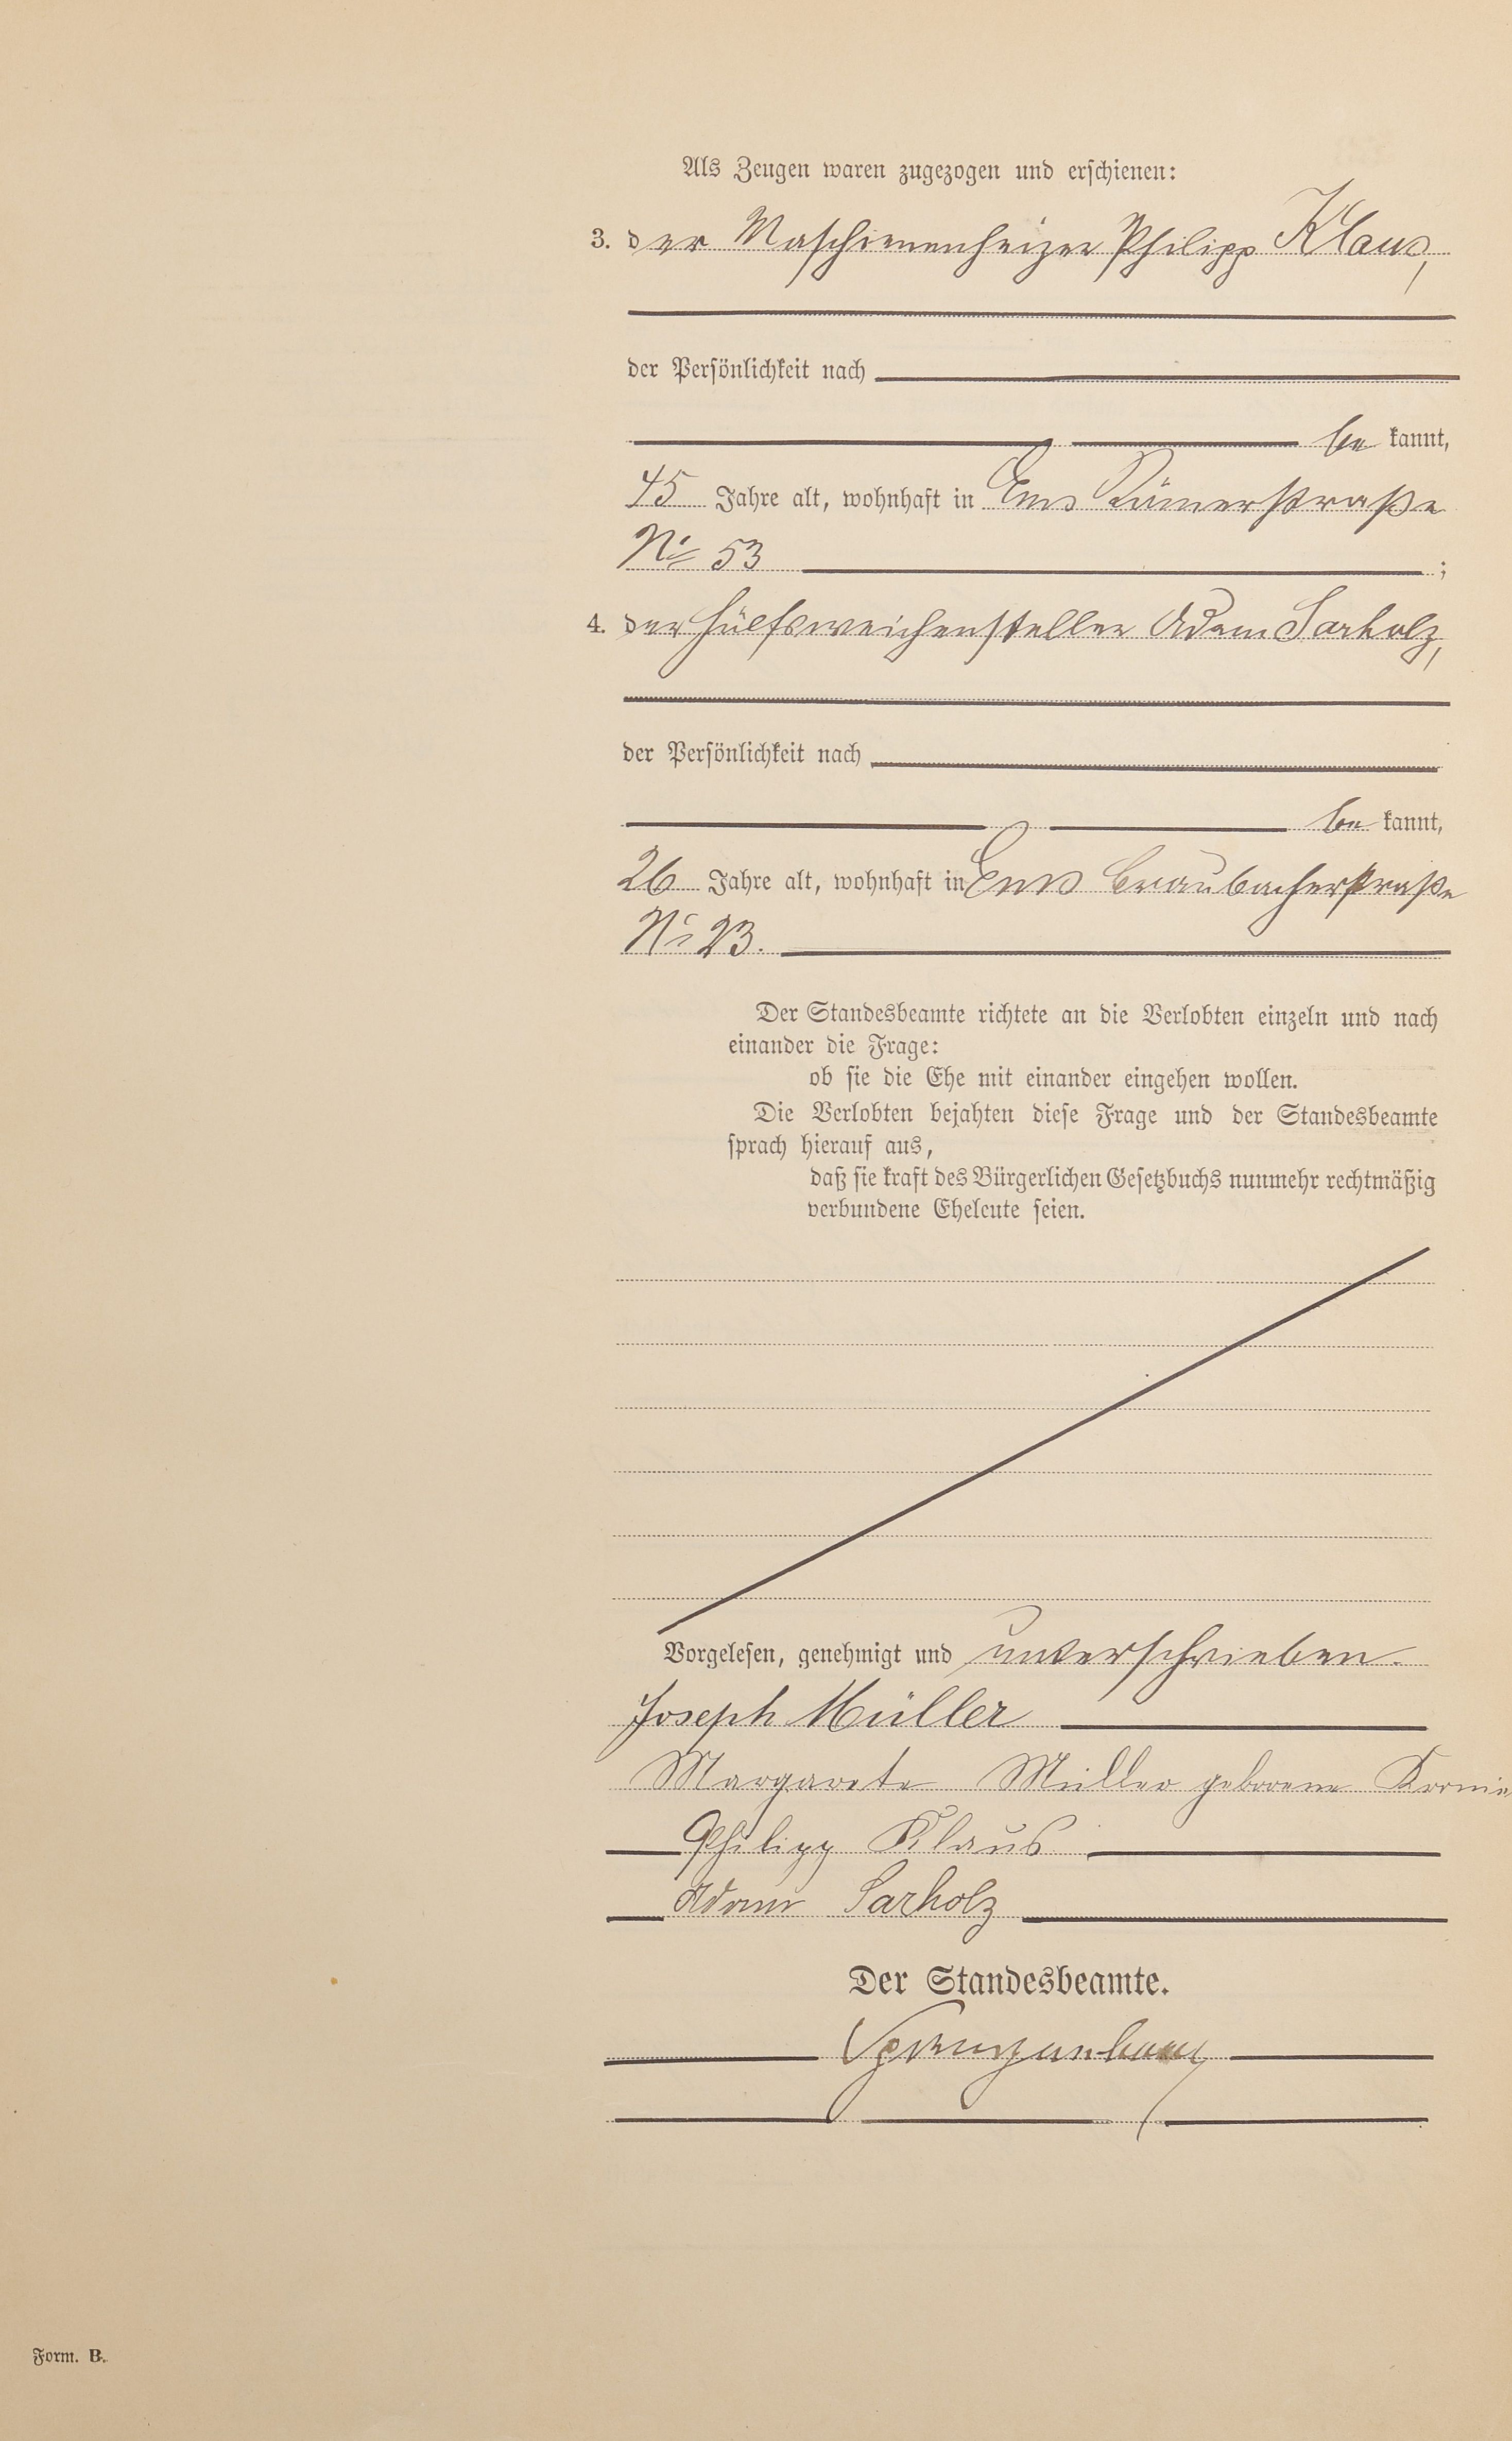 Als Zeugen waren zugezogen und erschienen:
3. der Maschinenheizer Philipp Klaus,
der Persönlichkeit nach
be kannt,
45 Jahre alt, wohnhaft in Ems Römerstraße
No 53 ;
4. der Hülfsweichensteller Adam Sarholz,
der Persönlichkeit nach
be kannt,
26 Jahre alt, wohnhaft in Ems Braubacherstraße
No 23.
Der Standesbeamte richtete an die Verlobten einzeln und nach
einander die Frage:
ob sie die Ehe mit einander eingehen wollen.
Die Verlobten bejahten diese Frage und der Standesbeamte
sprach hierauf aus,
daß sie kraft des Bürgerlichen Gesetzbuchs nunmehr rechtmäßig
verbundene Eheleute seien.
Vorgelesen, genehmigt und unterschrieben.
Joseph Müller
Margarete Müller geborene
Philipp Klaus
Adam Sarholz
Der Standesbeamte.
Form. B.